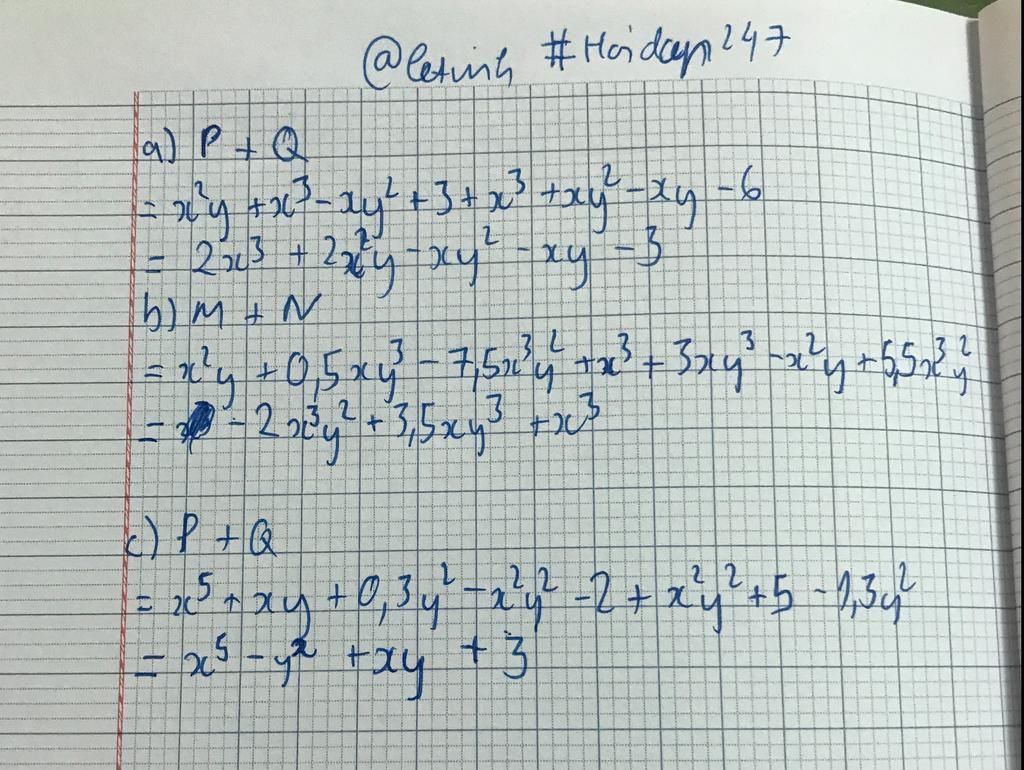 @letinh #Hoidap247
a) P + Q
= x²y + x³ - xy² + 3 + x³ + xy² - xy - 6
= 2x³ + 2x²y - xy² - xy - 3
b) M + N
= x²y + 0,5xy³ - 7,5x³y² + x³ + 3xy³ - x²y + 5,5x³y²
= - 2x³y² + 3,5xy³ + x³
c) P + Q
= x⁵ + xy + 0,3y² - x²y² - 2 + x²y² + 5 - 1,3y²
= x⁵ - y² + xy + 3